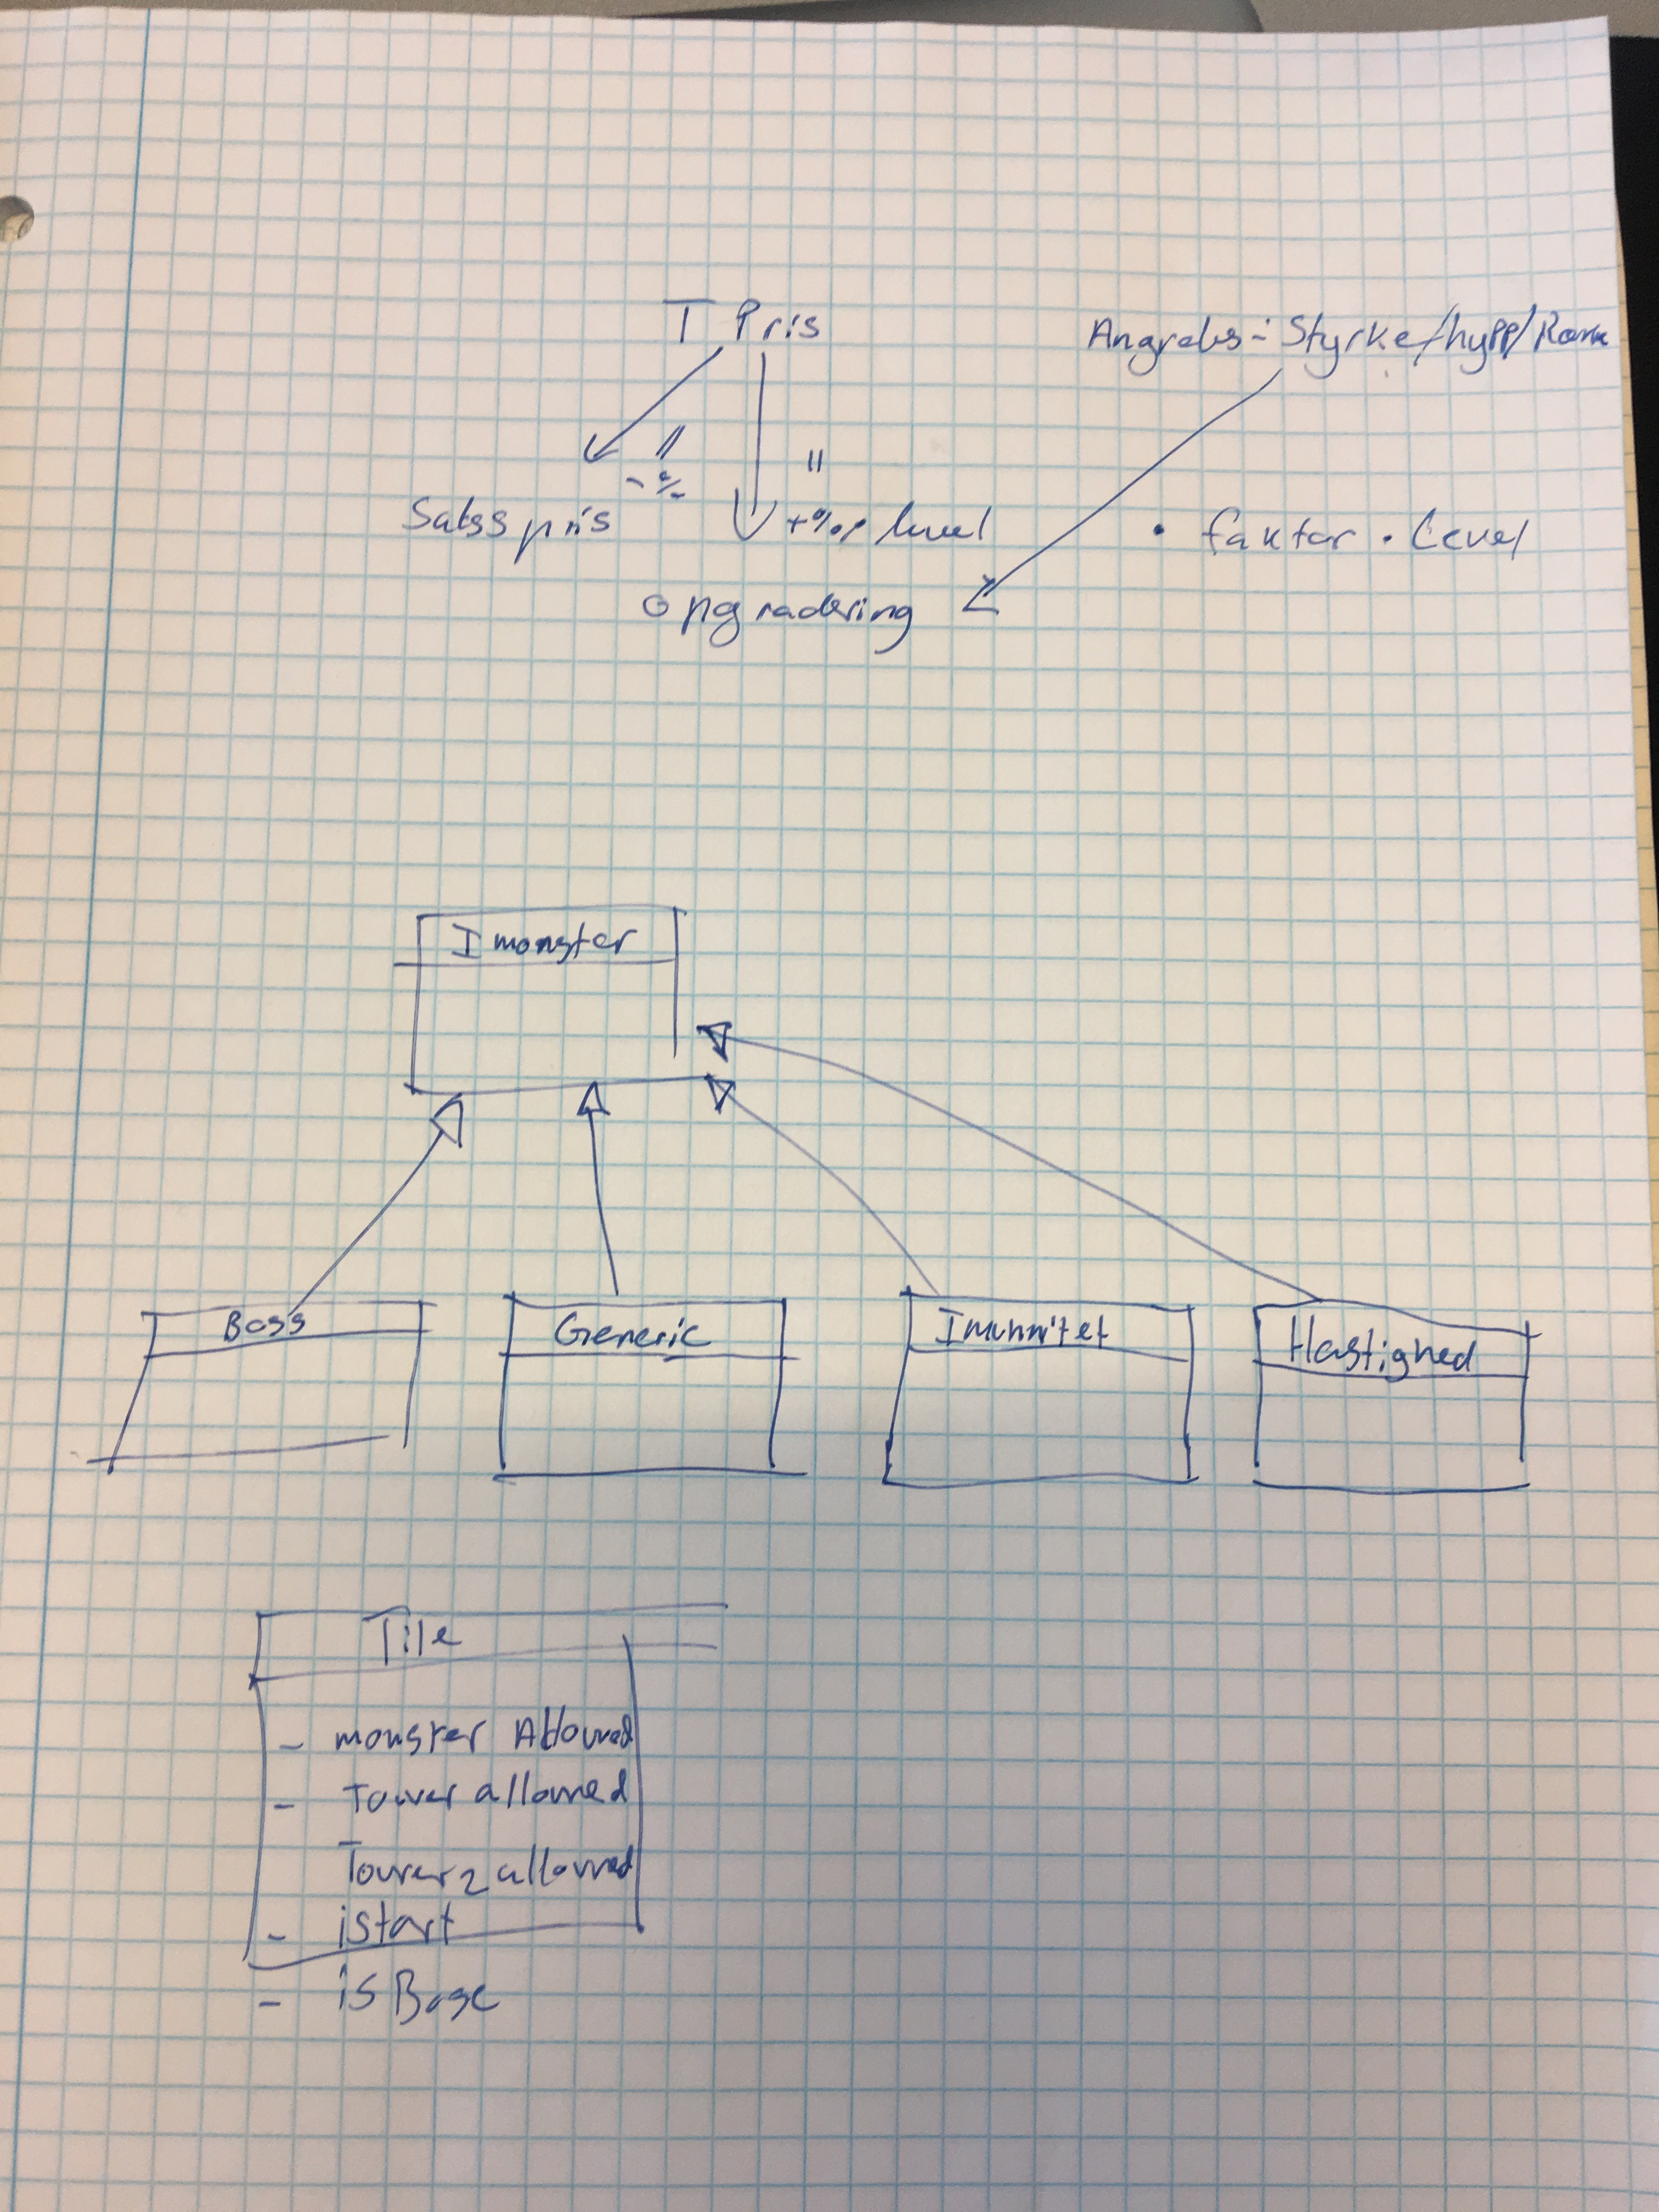 T Pris
Angrebs- Styrke/hypp/
- %
Salgs pris
+% level
• faktor • Level
Opgradering
I monster
Boss
Generic
Imunnitet
Hastighed
Tile
- monster Allowed
- Tower allowed
- Tower2 allowed
- istart
- is Base